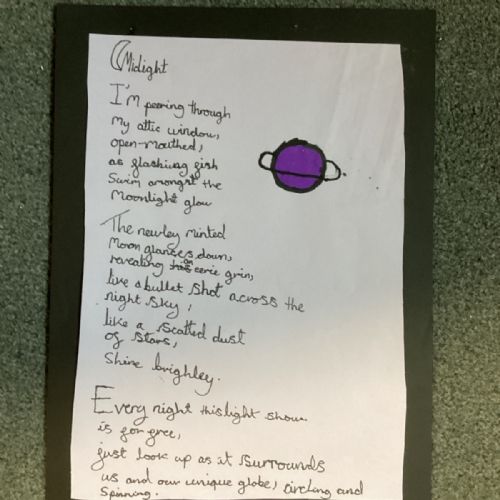 Midight
I'm peering through
my attic window,
open-mouthed,
as flashing fish
swim amongst the
Moonlight glow
The newley minted
Moon glances down,
revealing an eerie grin,
like a bullet shot across the
night sky,
like a scatted dust
of stars,
Shine brighley.
Every night this light show
is for free,
just look up as it surrounds
us and our unique globe, circling and
spinning.